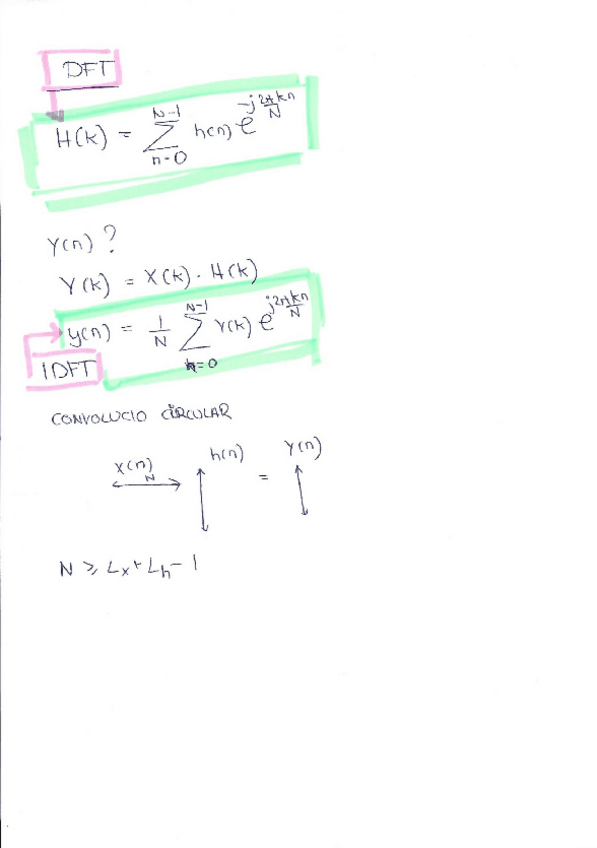 DFT
H(k) = \sum_{n=0}^{N-1} h(n) e^{-j\frac{2\pi kn}{N}}
Y(n) ?
Y(k) = X(k) · H(k)
y(n) = \frac{1}{N} \sum_{k=0}^{N-1} Y(k) e^{j\frac{2\pi kn}{N}}
IDFT
CONVOLUCIO CIRCULAR
X(n) N h(n) = Y(n)
N ≥ L_x + L_h - 1